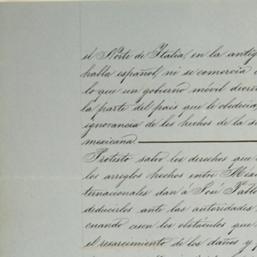 el Norte de Italia, en la antig
habla español, ni se comercia c
lo que un gobierno móvil decre
la parte del pais que le obedecia
ignorancia de los hechos de la s
mexicana.
Protesto salvo los derechos que
los arreglos hechos entre Mex
ternacionales dan á José Pabl
deducirlos ante las autoridades
cuando cesen los obstáculos que
el resarcimiento de los daños y p